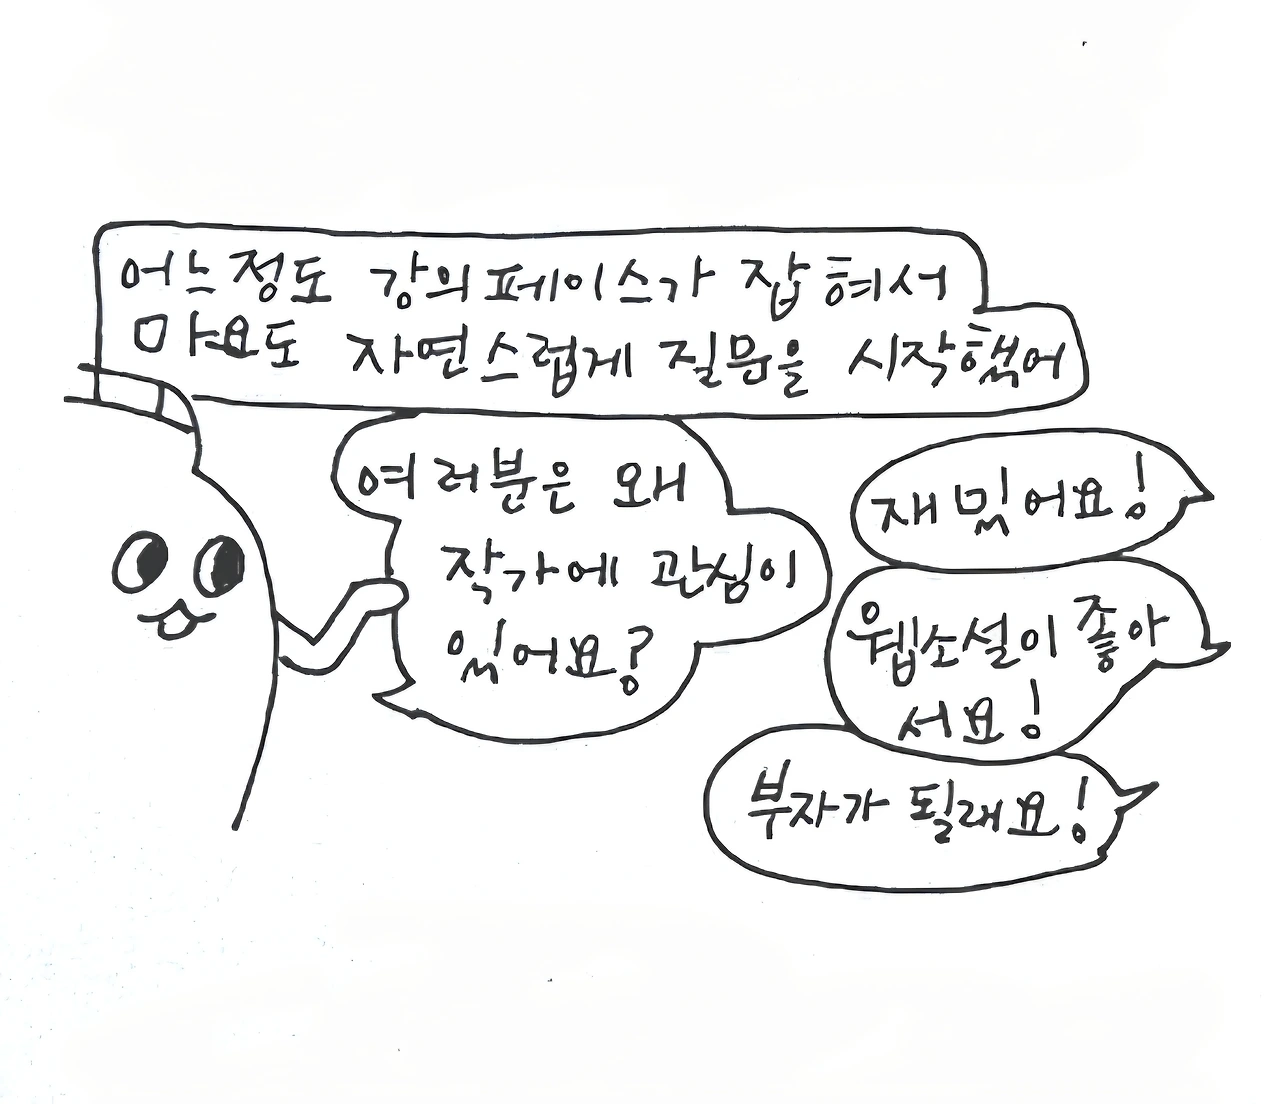 어느정도 강의페이스가 잡혀서
마요도 자연스럽게 질문을 시작했어
여러분은 왜
작가에 관심이
있어요?
재밌어요!
웹소설이 좋아
서요!
부자가 될래요!